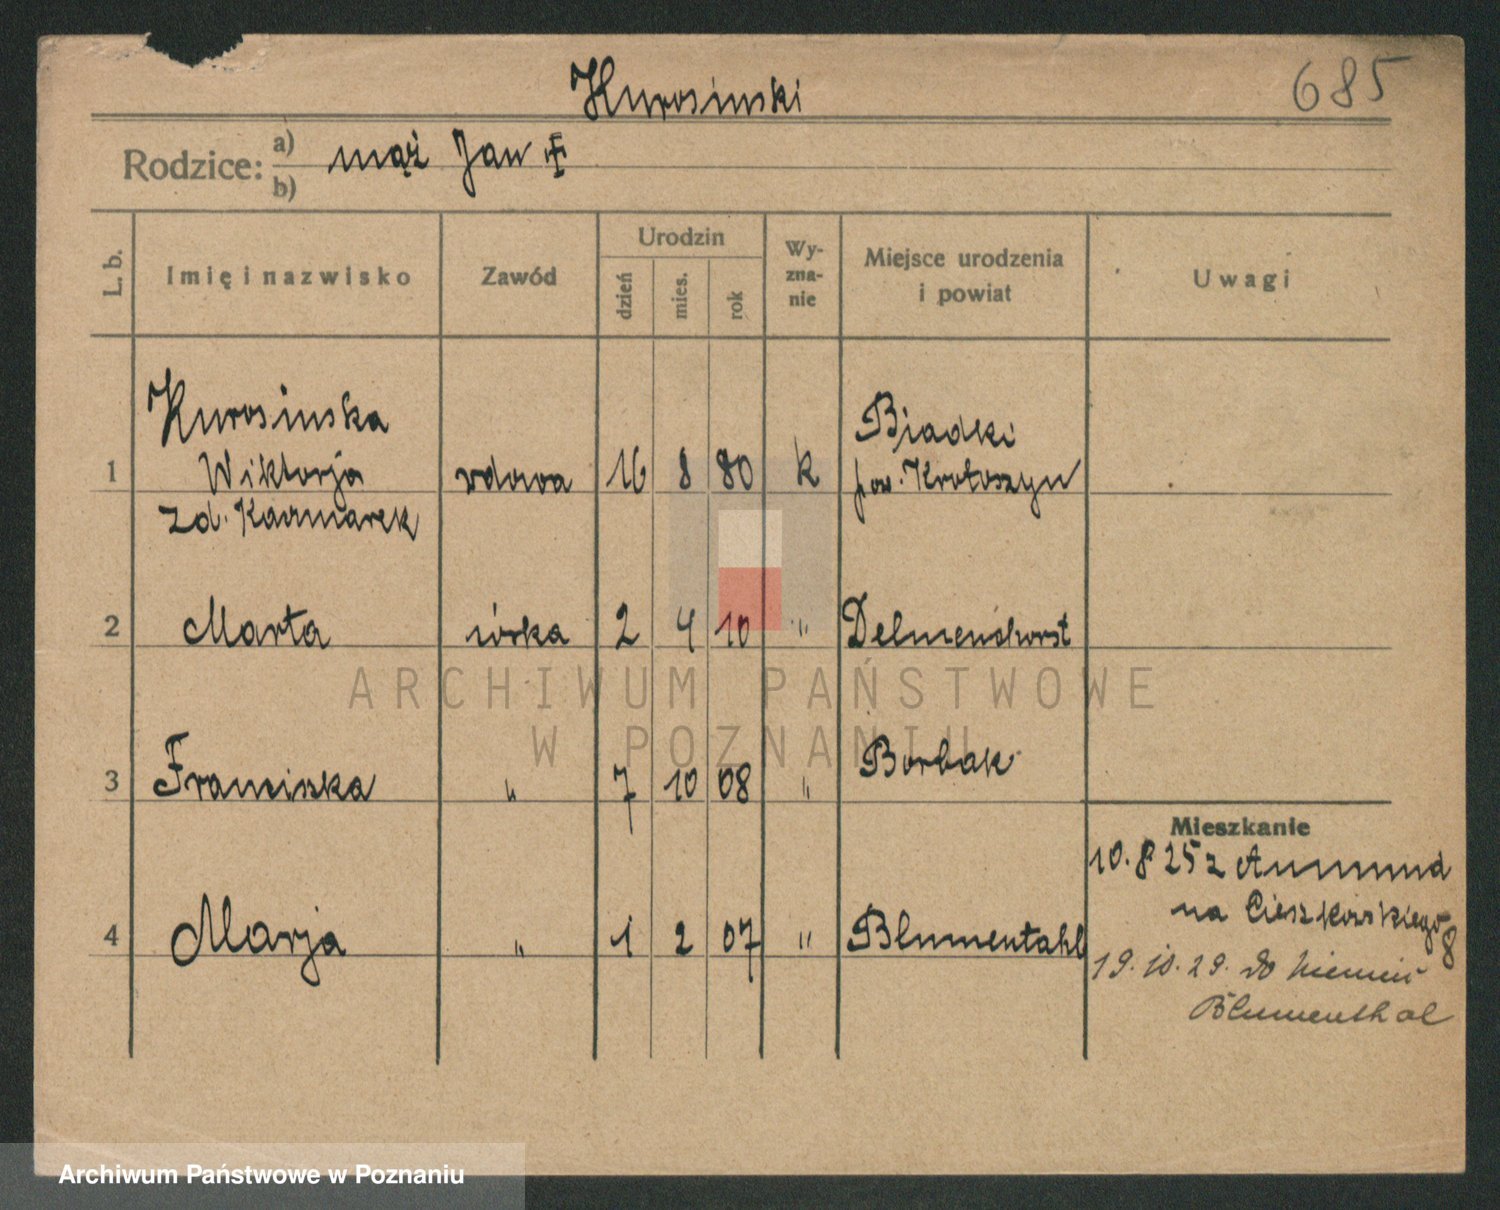 Kurosinski
685
Rodzice: a) mąż Jan
b)
L. b.
Imię i nazwisko
Zawód
Urodzin
dzień
mies.
rok
Wy-
zna-
nie
Miejsce urodzenia
i powiat
Uwagi
Kurosinska
1 Wiktorja wdowa 16 8 80 k Biadki
zd. Kaczmarek pow. Krotoszyn
2 Marta córka 2 4 10 " Delmenhorst
3 Franciszka " 7 10 08 " Borbak
4 Marja " 1 2 07 " Blumentahl
Mieszkanie
10. 8 25 z Aumund
na Cieszkowskiego 8
19. 10. 29. do Niemiec
Blumenthal
ARCHIWUM PAŃSTWOWE
W POZNANIU
Archiwum Państwowe w Poznaniu